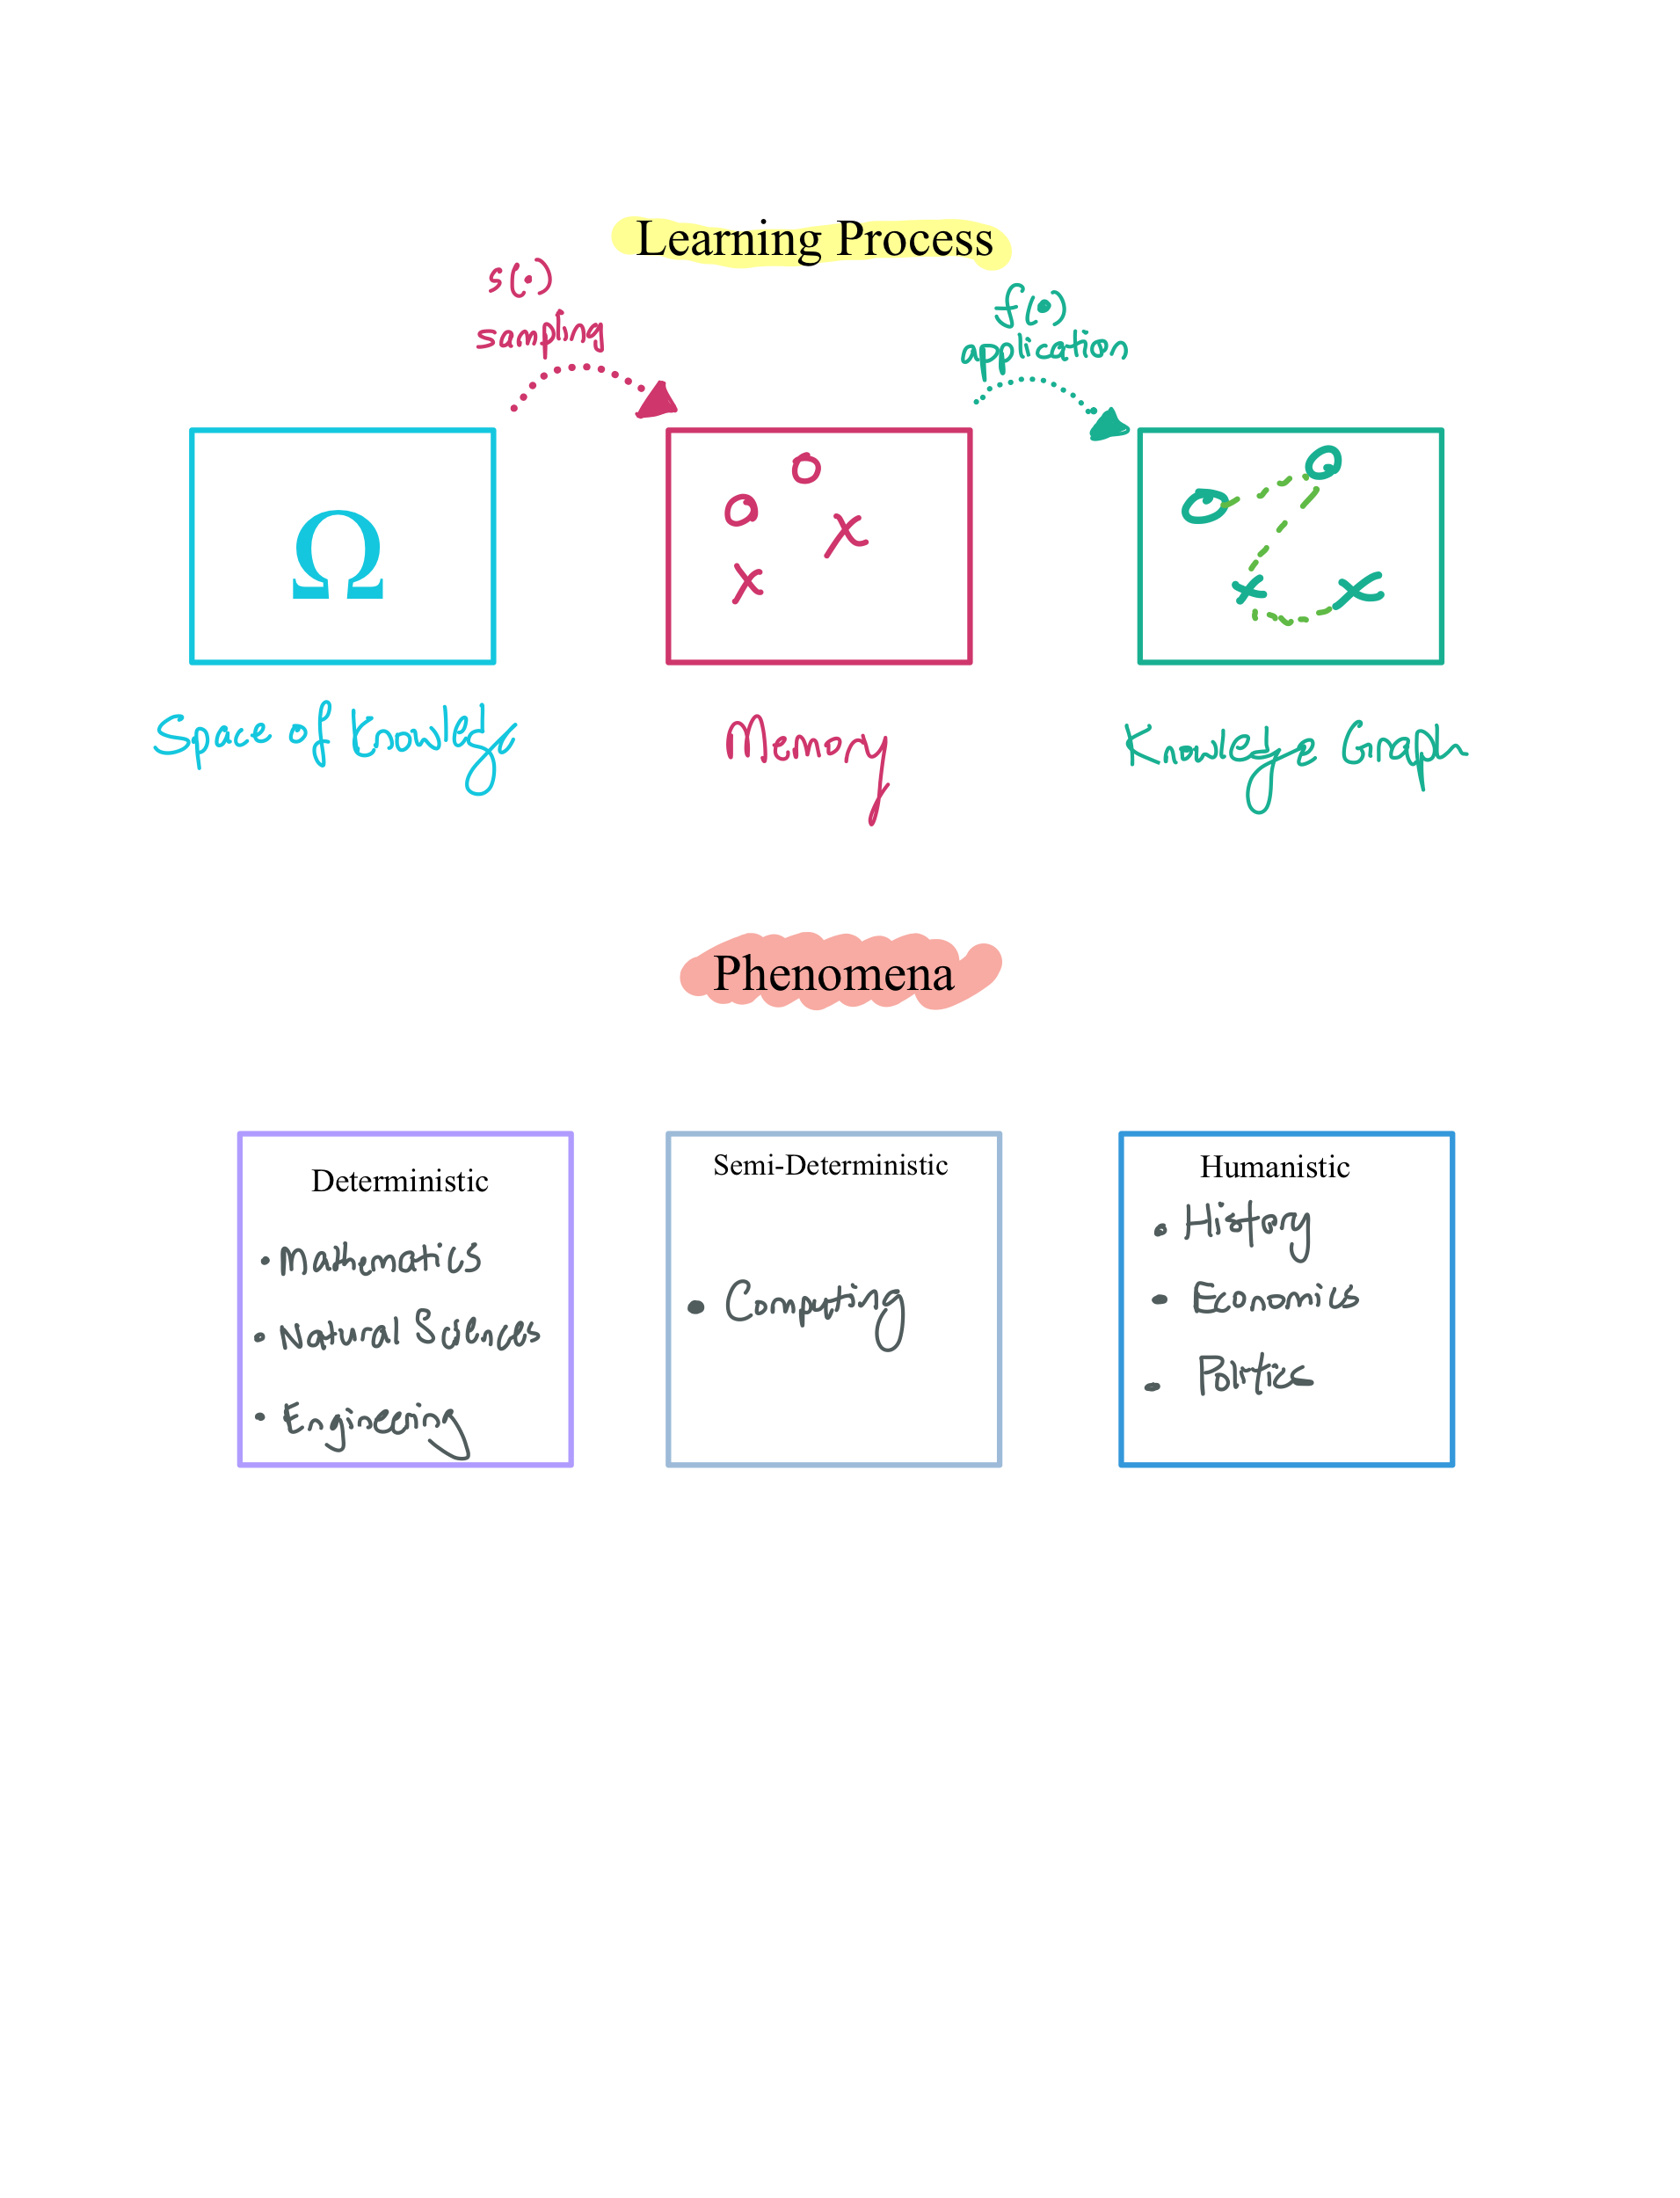 Learning Process
s(•)
sampling
f(•)
application
Ω
Space of Knowledge
Memory
Knowledge Graph
Phenomena
Deterministic
• Mathematics
• Natural Sciences
• Engineering
Semi-Deterministic
• Computing
Humanistic
• History
• Economics
• Politics